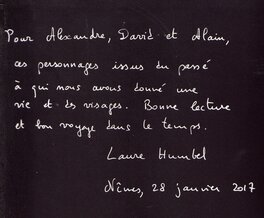 Pour Alexandre, David et Alain,
ces personnages issus du passé
à qui nous avons donné une
vie et des visages. Bonne lecture
et bon voyage dans le temps.
Laure Humbel
Nîmes, 28 janvier 2017